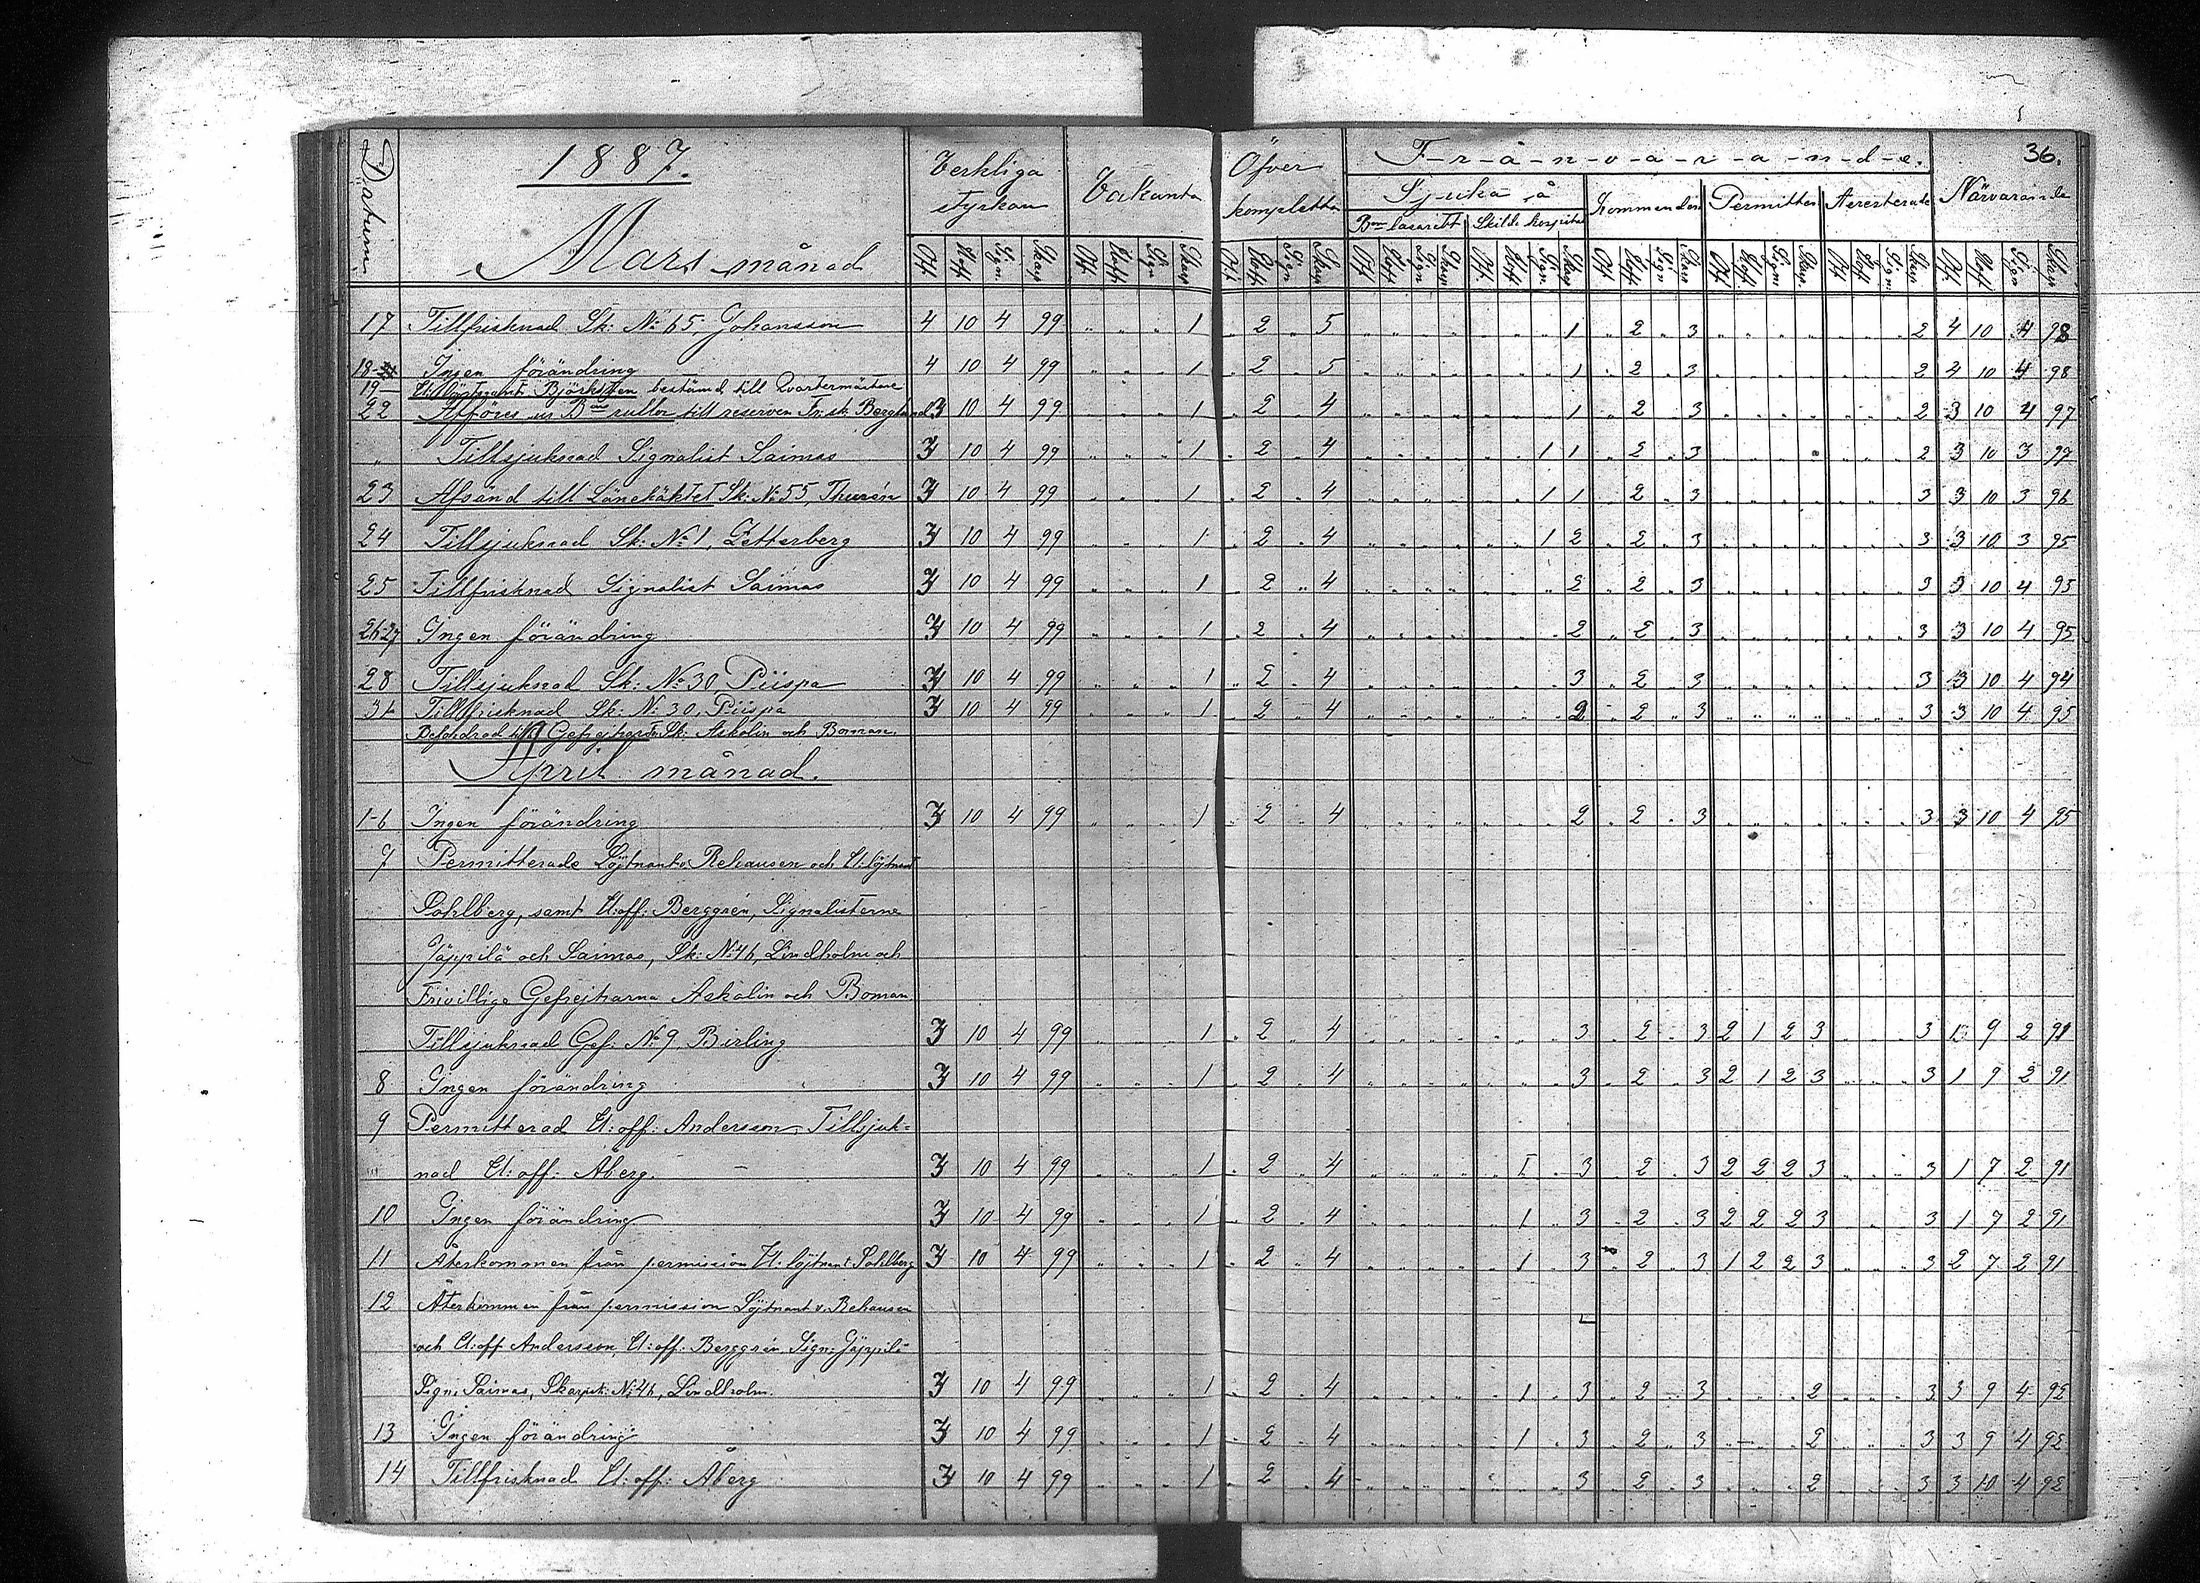 36.
Datum
1887.
Mars månad
Verkliga styrkan
Vakanta
Öfver kompletta
F-r-å-n-v-a-r-a-n-d-e.
Närvarande
Sjuka å
Kommender.
Permitter.
Arresterade
Bns lasarett
Skilda hospital
Off. Uoff. Sign. Skarp
17 Tillfrisknad Sk: No 65 Johansson 4 10 4 99 " " " 1 " 2 " 5 " " " " " " " 1 " 2 " 3 " " " " " " " 2 4 10 4 98
18 Ingen förändring 4 10 4 99 " " " 1 " 2 " 5 " " " " " " " 1 " 2 " 3 " " " " " " " 2 4 10 4 98
19 U: Löjtnant Björksten bestämd till Qvartermästare
22 Afföres ur Bns rullor till reserven Fr: sk: Berglund 3 10 4 99 " " " 1 " 2 " 4 " " " " " " " 1 " 2 " 3 " " " " " " " 2 3 10 4 97
" Tillsjuknad Signalist Saimas 3 10 4 99 " " " 1 " 2 " 4 " " " " " " 1 1 " 2 " 3 " " " " " " " 2 3 10 3 97
23 Afsänd till Länehäktet Sk: No 55, Thurén 3 10 4 99 " " " 1 " 2 " 4 " " " " " " 1 1 " 2 " 3 " " " " " " " 3 3 10 3 96
24 Tillsjuknad Sk: No 1, Zetterberg 3 10 4 99 " " " 1 " 2 " 4 " " " " " " 1 2 " 2 " 3 " " " " " " " 3 3 10 3 95
25 Tillfrisknad Signalist Saimas 3 10 4 99 " " " 1 " 2 " 4 " " " " " " " 2 " 2 " 3 " " " " " " " 3 3 10 4 95
26-27 Ingen förändring 3 10 4 99 " " " 1 " 2 " 4 " " " " " " " 2 " 2 " 3 " " " " " " " 3 3 10 4 95
28 Tillsjuknad Sk: No 30 Piispa 3 10 4 99 " " " 1 " 2 " 4 " " " " " " " 3 " 2 " 3 " " " " " " " 3 3 10 4 94
31 Tillfrisknad Sk: No 30, Piispa 3 10 4 99 " " " 1 " 2 " 4 " " " " " " " 2 " 2 " 3 " " " " " " " 3 3 10 4 95
Befordrad till Gefrejtare Fr: Sk: Askolin och Boman.
April månad.
1-6 Ingen förändring 3 10 4 99 " " " 1 " 2 " 4 " " " " " " " 2 " 2 " 3 " " " " " " " 3 3 10 4 95
7 Permitterade Löjtnant v. Rehausen och U: löjtnant
Sohlberg, samt U: off: Berggrén, Signalisterne
Jäppilä och Saimas, Sk: No 46, Lindholm och
Frivillige Gefrejtarna Askolin och Boman
Tillsjuknad Gef: No 9, Birling 3 10 4 99 " " " 1 " 2 " 4 " " " " " " " 3 " 2 " 3 2 1 2 3 " " " 3 1 9 2 91
8 Ingen förändring 3 10 4 99 " " " 1 " 2 " 4 " " " " " " " 3 " 2 " 3 2 1 2 3 " " " 3 1 9 2 91
9 Permitterad U: off: Andersson, Tillsjuk-
nad U: off: Åberg. 3 10 4 99 " " " 1 " 2 " 4 " " " " " 1 " 3 " 2 " 3 2 2 2 3 " " " 3 1 7 2 91
10 Ingen förändring 3 10 4 99 " " " 1 " 2 " 4 " " " " " 1 " 3 " 2 " 3 2 2 2 3 " " " 3 1 7 2 91
11 Återkommen från permission U: löjtnant Sohlberg 3 10 4 99 " " " 1 " 2 " 4 " " " " " 1 " 3 " 2 " 3 1 2 2 3 " " " 3 2 7 2 91
12 Återkommen från permission Löjtnant v. Rehausen
och U: off Andersson, U: off: Berggrén, Sign: Jäppilä
Sign: Saimas, Skarpsk: No 46, Lindholm. 3 10 4 99 " " " 1 " 2 " 4 " " " " " 1 " 3 " 2 " 3 " " " 2 " " " 3 3 9 4 92
13 Ingen förändring 3 10 4 99 " " " 1 " 2 " 4 " " " " " 1 " 3 " 2 " 3 " " " 2 " " " 3 3 9 4 92
14 Tillfrisknad U: off: Åberg 3 10 4 99 " " " 1 " 2 " 4 " " " " " " " 3 " 2 " 3 " " " 2 " " " 3 3 10 4 92